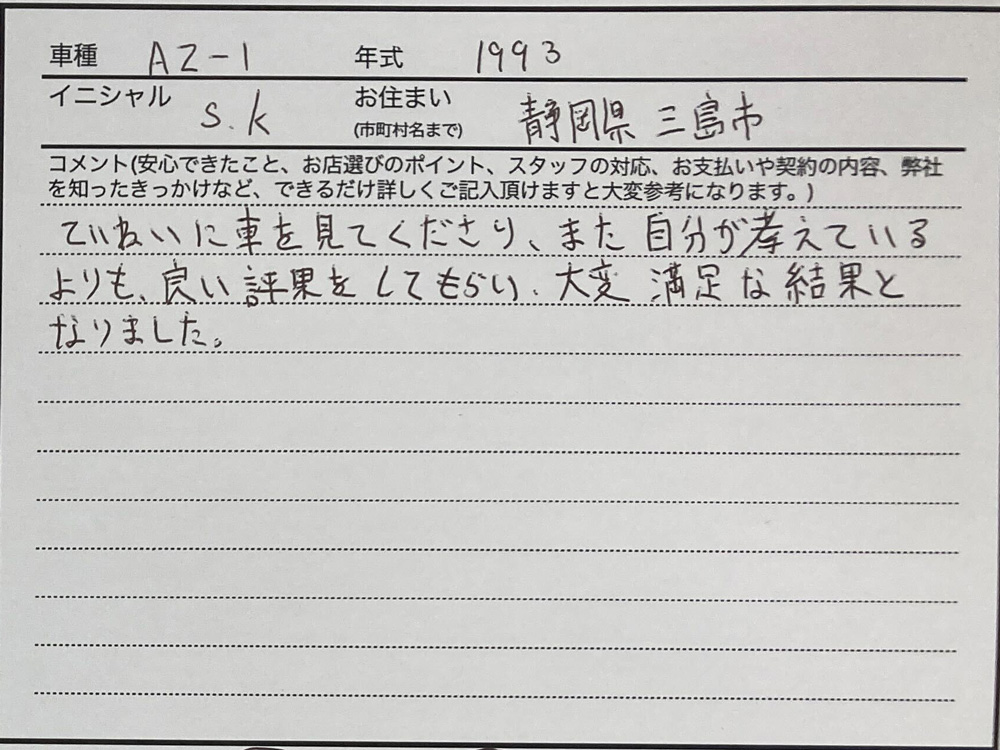 車種 AZ-1 年式 1993
イニシャル S.K お住まい (市町村名まで) 静岡県 三島市
コメント(安心できたこと、お店選びのポイント、スタッフの対応、お支払いや契約の内容、弊社
を知ったきっかけなど、できるだけ詳しくご記入頂けますと大変参考になります。)
ていねいに車を見てくださり、また自分が考えている
よりも、良い評果をしてもらい、大変満足な結果と
なりました。